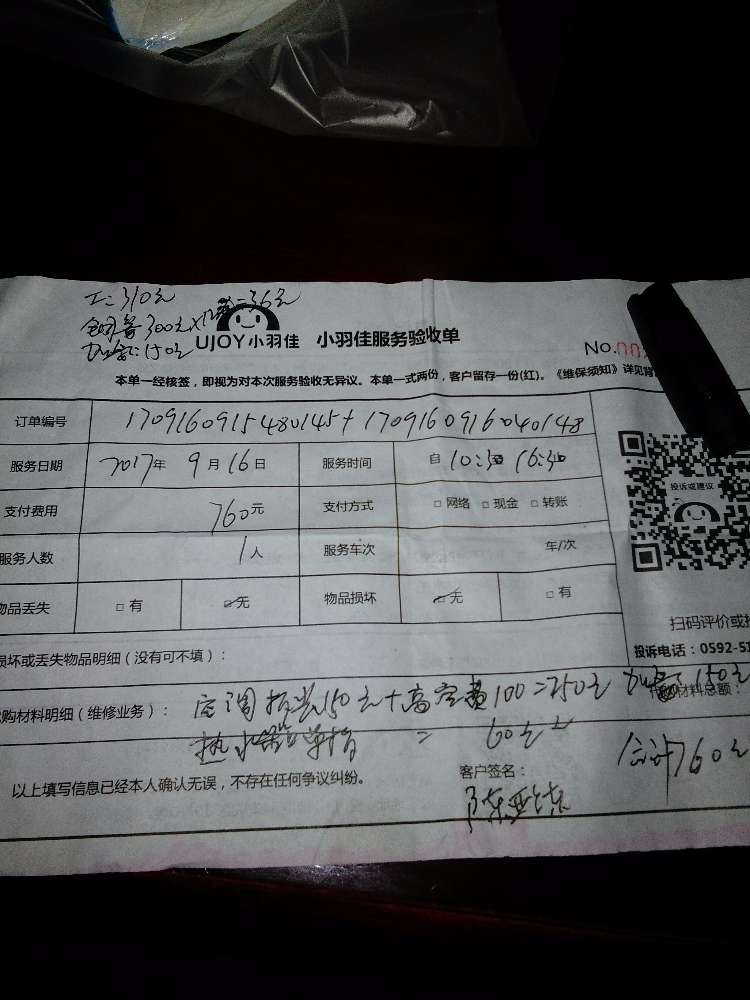 工:310元
300元×12%=36元
150元
UJOY小羽佳 小羽佳服务验收单
No.00
本单一经核签，即视为对本次服务验收无异议。本单一式两份，客户留存一份(红)。《维保须知》详见背
订单编号 1709160915480145+1709160916040148
服务日期 2017年 9月16日 服务时间 自 10:30 16:30
支付费用 760元 支付方式 □网络 □现金 □转账
服务人数 1人 服务车次 车/次
投诉或建议
物品丢失 □有 □无 物品损坏 □无 □有
扫码评价或投
损坏或丢失物品明细（没有可不填）：
投诉电话：0592-51
购材料明细（维修业务）： 空调拆装150元+高空费100=250元 150元
材料总额：
热水器 = 60元
以上填写信息已经本人确认无误，不存在任何争议纠纷。
客户签名：
合计760元
陈亚